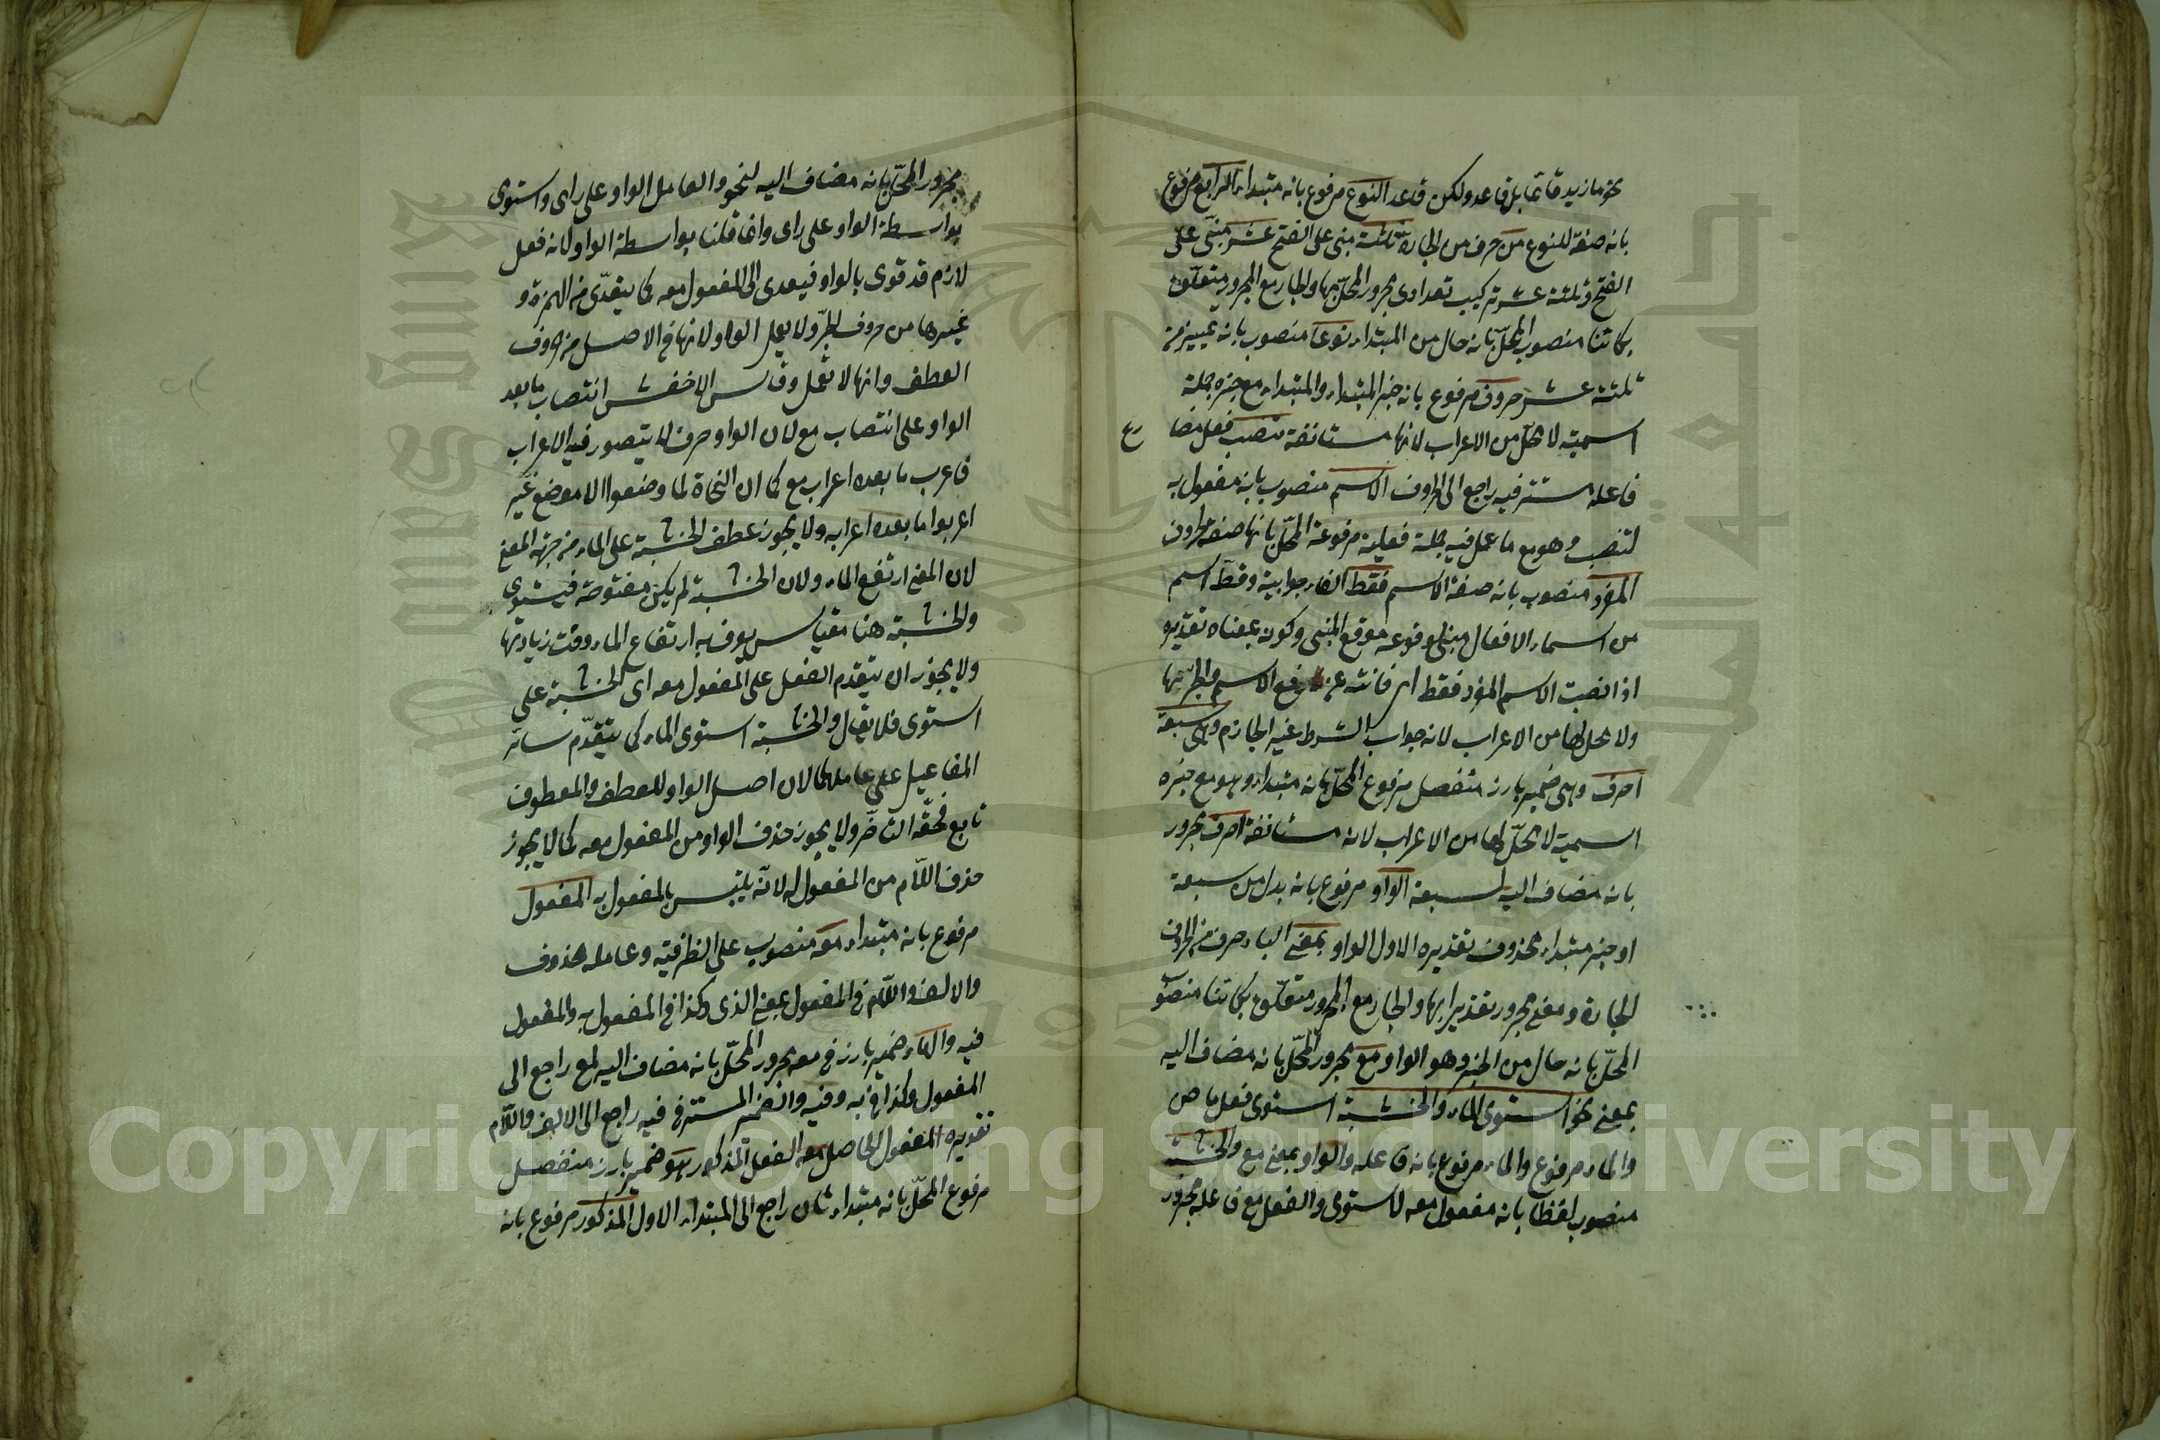 نحو ما زيد قائما بل قاعد ولكن قاعد النوع مرفوع بانه مبتداء الرابع مرفوع
بانه صفة للنوع من حرف من الجارة ثلثة مبنى على الفتح عشر مبنى على
الفتح وثلثة عشر تركيب تعدادى مجرور المحل بها والجار مع المجرور متعلق
بكائنا منصوب المحل بانه حال من المبتداء نوعا منصوب بانه تمييز من
ثلثة عشر حروف مرفوع بانه خبر المبتداء والمبتداء مع خبره جملة
اسمية لا محل من الاعراب لانها مستانفة تنصب فعل مضا
رع
فاعله مستتر فيه راجع الى الحروف الاسم منصوب بانه مفعول به
لتنصب وهو مع ما عمل فيه جملة فعلية مرفوعة المحل بانها صفة لحروف
المفرد منصوب بانه صفة الاسم فقط الفاء جوابية وقط اسم
من اسماء الافعال مبنى لوقوعه موقع المبنى وكونه بمعناه تقديره
اذا نصبت الاسم المفرد فقط اى فانته عن رفع الاسم والجر بها
ولا محل لها من الاعراب لانه جواب الشرط غير الجازم وهى سبعة
احرف وهى ضمير بارز منفصل مرفوع المحل بانه مبتداء وهو مع خبره
اسمية لا محل لها من الاعراب لانه مستانفة احرف مجرور
بانه مضاف اليه لسبعة الواو مرفوع بانه بدل من سبعة
او خبر مبتداء محذوف تقديره الاول الواو بمعنى الباء حرف من الحروف
الجارة ومعنى مجرور تقديرا بها والجار مع المجرور متعلق بكائنا منصوب
المحل بانه حال من الخبر وهو الواو مع مجرور المحل بانه مضاف اليه
بمعنى نحو استوى الماء والخشبة استوى فعل ماض
والماء مرفوع والماء مرفوع بانه فاعله والواو بمعنى مع والخشبة
منصوب لفظا بانه مفعول معه لاستوى والفعل مع فاعله مجرور
مجرور المحل بانه مضاف اليه لنحو والعامل الواو على راى واستوى
بواسطة الواو على راى وانما قلنا بواسطة الواو لانه فعل
لازم قد قوى بالواو فيعدى الى المفعول معه كما يتعدى من الهمزة و
غيرها من حروف الجر ولا يعمل الواو لانها فى الاصل من حروف
العطف وانها لا تعمل وقاس الاخفش انتصاب ما بعد
الواو على انتصاب مع لان الواو حرف لا يتصور فيه الاعراب
فاعرب ما بعده اعراب مع كما ان النحاة لما وضعوا الا موضع غير
اعربوا ما بعده اعرابه ولا يجوز عطف الخشبة على الماء من جهة المعنى
لان المعنى ارتفع الماء ولان الخشبة لم يكن مفتوحة فيستوى
والخشبة هنا مقياس يعرف به ارتفاع الماء وقت زيادتها
ولا يجوز ان يتقدم الفعل على المفعول معه اى الخشبة على
استوى فلا يقال والخشبة استوى الماء كما يتقدم سائر
المفاعيل على عاملها لان اصل الواو للعطف والمعطوف
تابع فحقه التاخر ولا يجوز حذف الواو من المفعول معه كما لا يجوز
حذف اللام من المفعول له لانه يلتبس بالمفعول به المفعول
مرفوع بانه مبتداء معه منصوب على الظرفية وعامله محذوف
والالف واللام فى المفعول بمعنى الذى وكذا فى المفعول به والمفعول
فيه والهاء ضمير بارز فى معه مجرور المحل بانه مضاف اليه لمع راجع الى
المفعول وكذا فى به وفيه والضمير المستتر فى فيه راجع الى الالف واللام
تقديره المفعول الحاصل معه الفعل المذكور هو ضمير بارز منفصل
مرفوع المحل بانه مبتداء ثان راجع الى المبتداء الاول المذكور مرفوع بانه
Copyright © King Saud University
جامعة الملك سعود
King Saud University
195